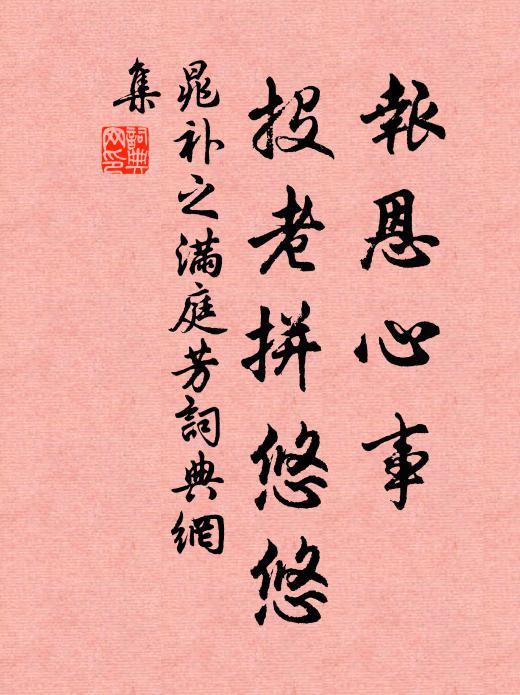 報恩心事
投老拼悠悠
晁补之满庭芳詞典網
集
詞典
网印